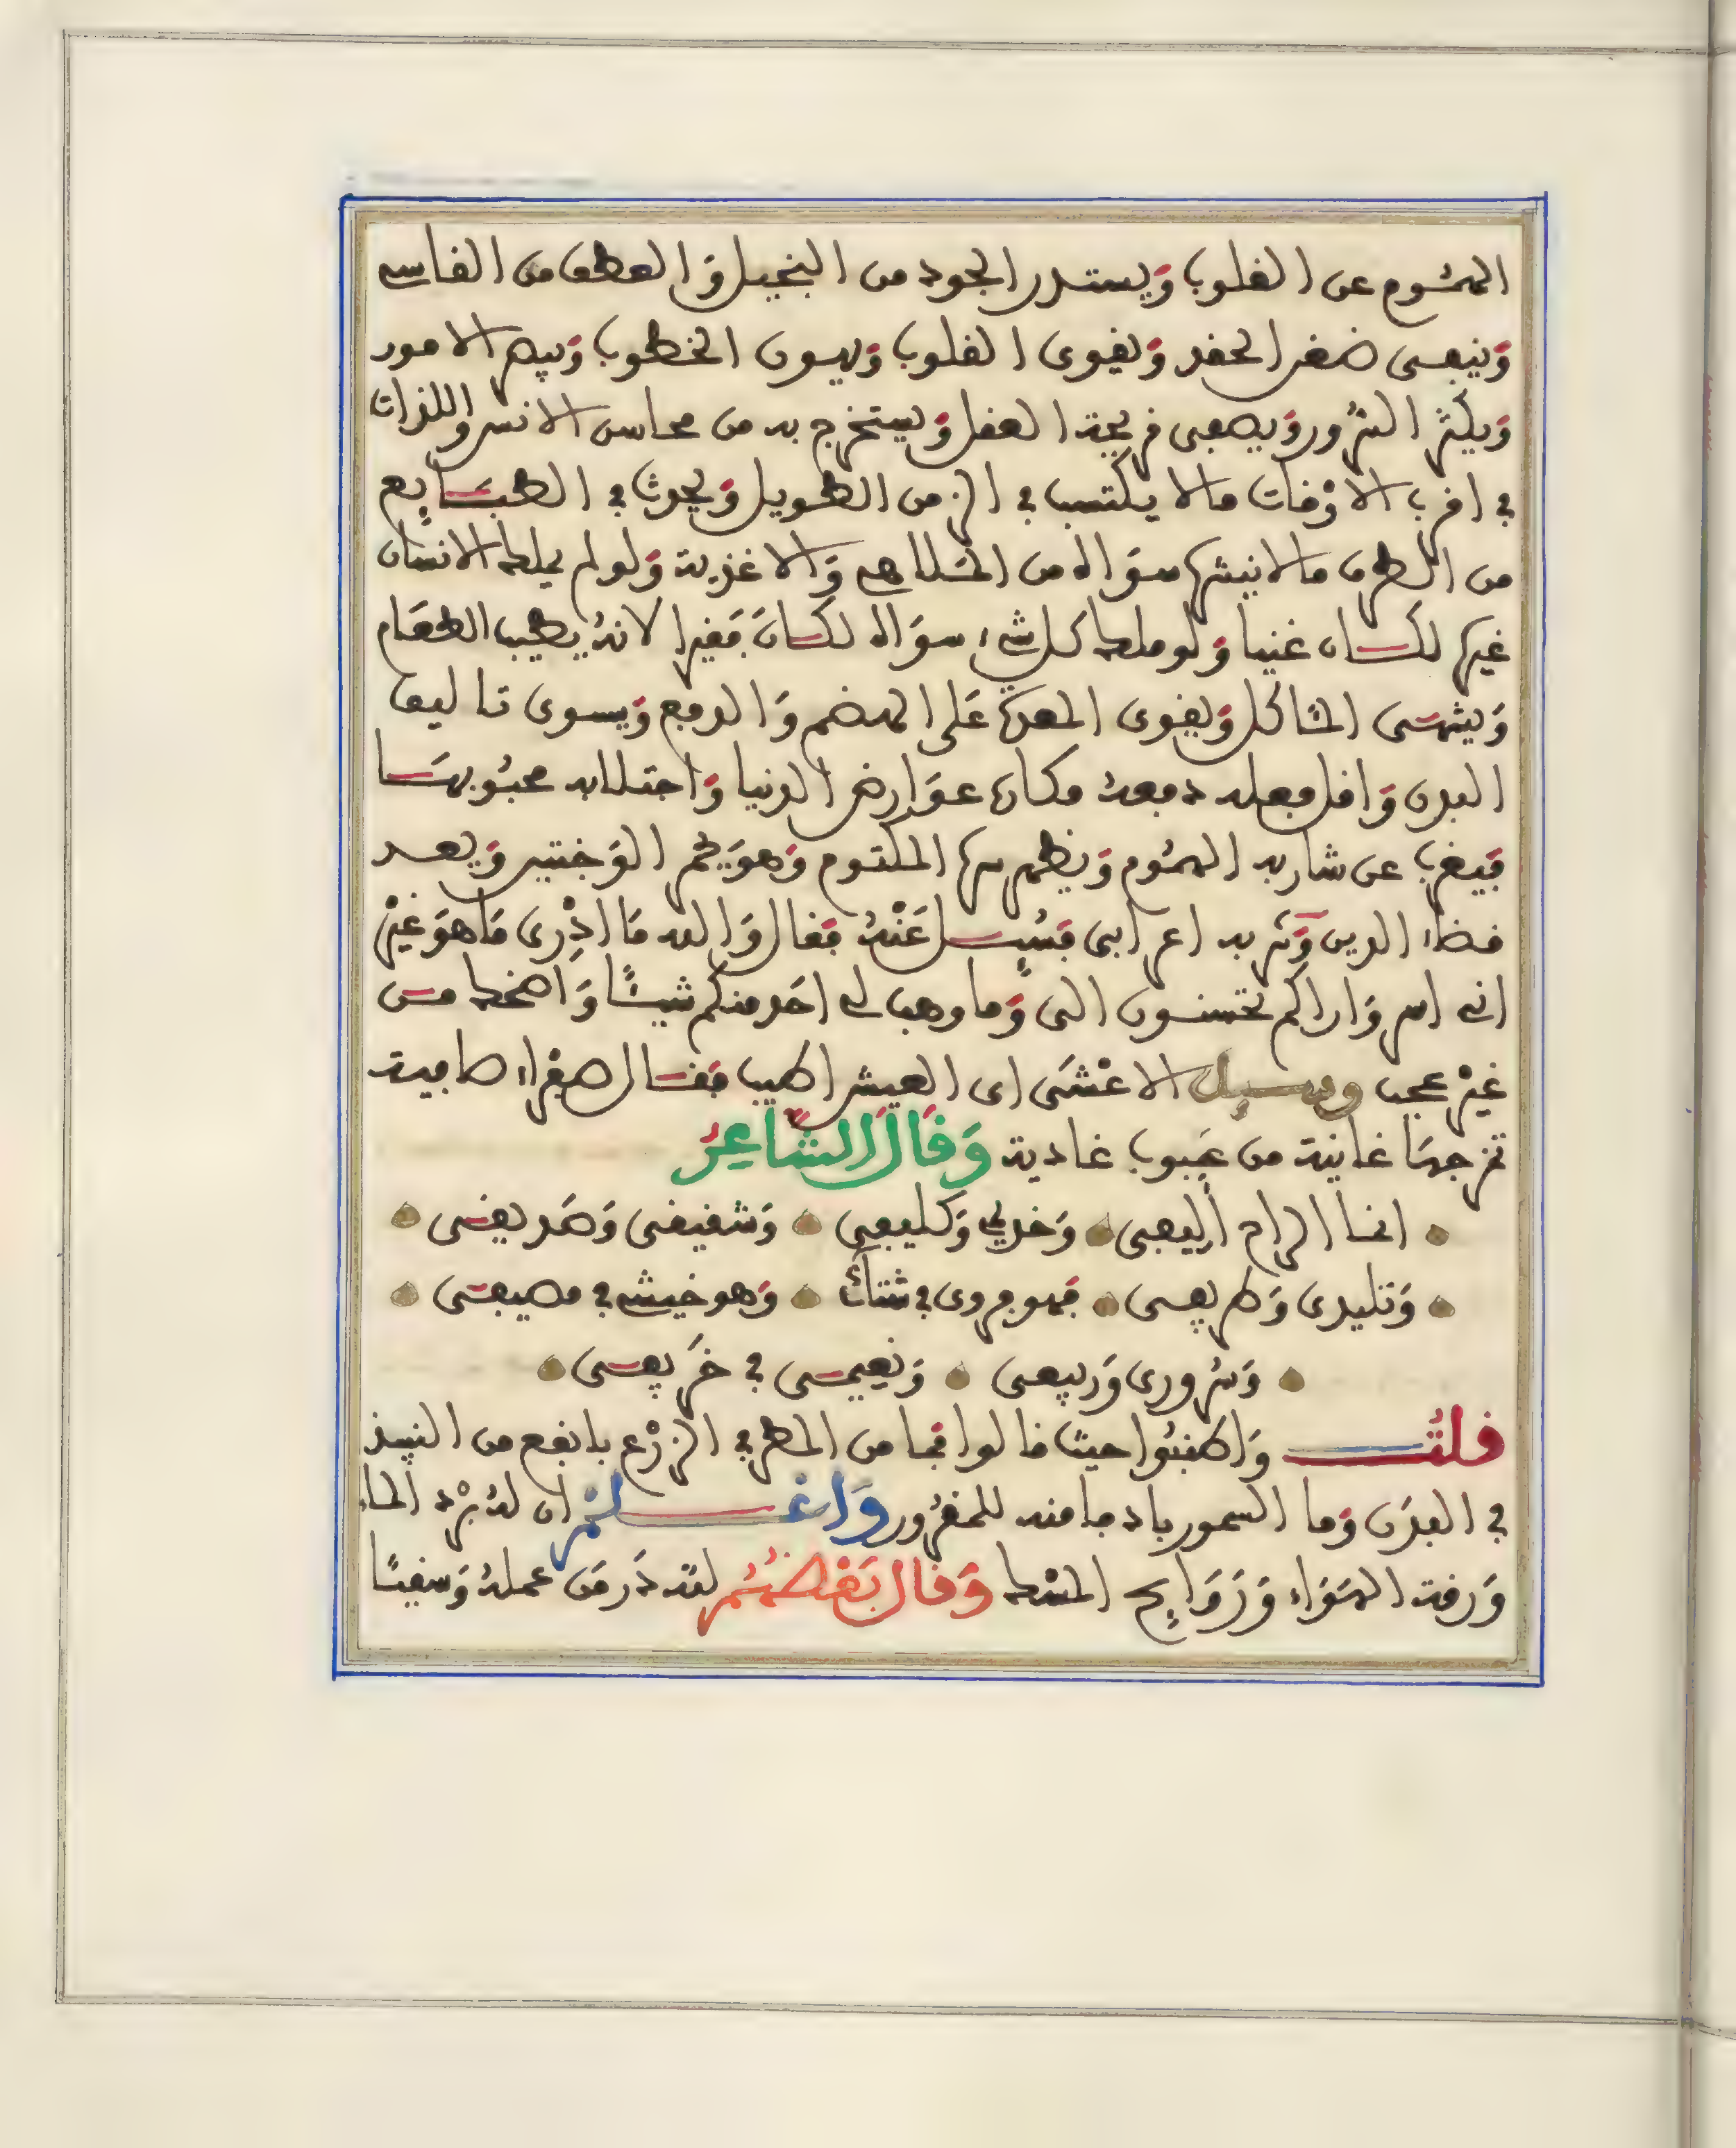 الهموم عن القلوب ويستدر الجود من البخيل والعطف من القاسي
وينفى ضغن الحقد ويقوى القلوب ويهون الخطوب ويبصر الامور
ويكثر السرور ويصفى قريحة العقل ويستخرج به من محاسن الانس واللذات
في اقرب الاوقات ما لا يكتسب في الزمن الطويل ويحدث في الطبايع
من الطرف ما لا ينيشها سواه من الملاهي والاغذية ولو لم يملك الانسان
غيرها لكان غنيا ولو ملك كل شيء سواه لكان فقيرا لانه يطيب الطعام
ويشهى المئاكل ويقوى المعدة على الهضم والدفع ويسوى تاليف
البدن واقل فعله دفعه مكاره عوارض الدنيا واجتلابه محبوبها
فيغرب عن شاربه الهموم ويظهر سرها المكتوم وهو يحمر الوجنتين ويعد
قضاء الدين وشربه اعرابى فسيل عنه فقال والله ما ادرى ما هو غير
اني اسر واراكم تحسنون الى وما وهب لي احد منكم شيئا واضحك من
غير عجب وسيل الاعشى اى العيش اطيب فقال صفراء صافية
تمزجها غانية من عيوب غادية وقال الشاعر
انما الراح اليفى وخدني وكليفى وشفيفى وصديقى
وتليدى وطريفى فهو فروى في شتائ وهو خيشي في مصيفى
وسرورى وربيعى ونعيمى في خريفى
قلت واطنبوا حيث قالوا فما من المطر في الزرع بانفع من النبيذ
في البدن وما السمور بادفا منه للمقرور واعلم ان له برد الماء
ورقة الهواء وروايح المسك وقال بعضهم لقد در من عمله وسقيا